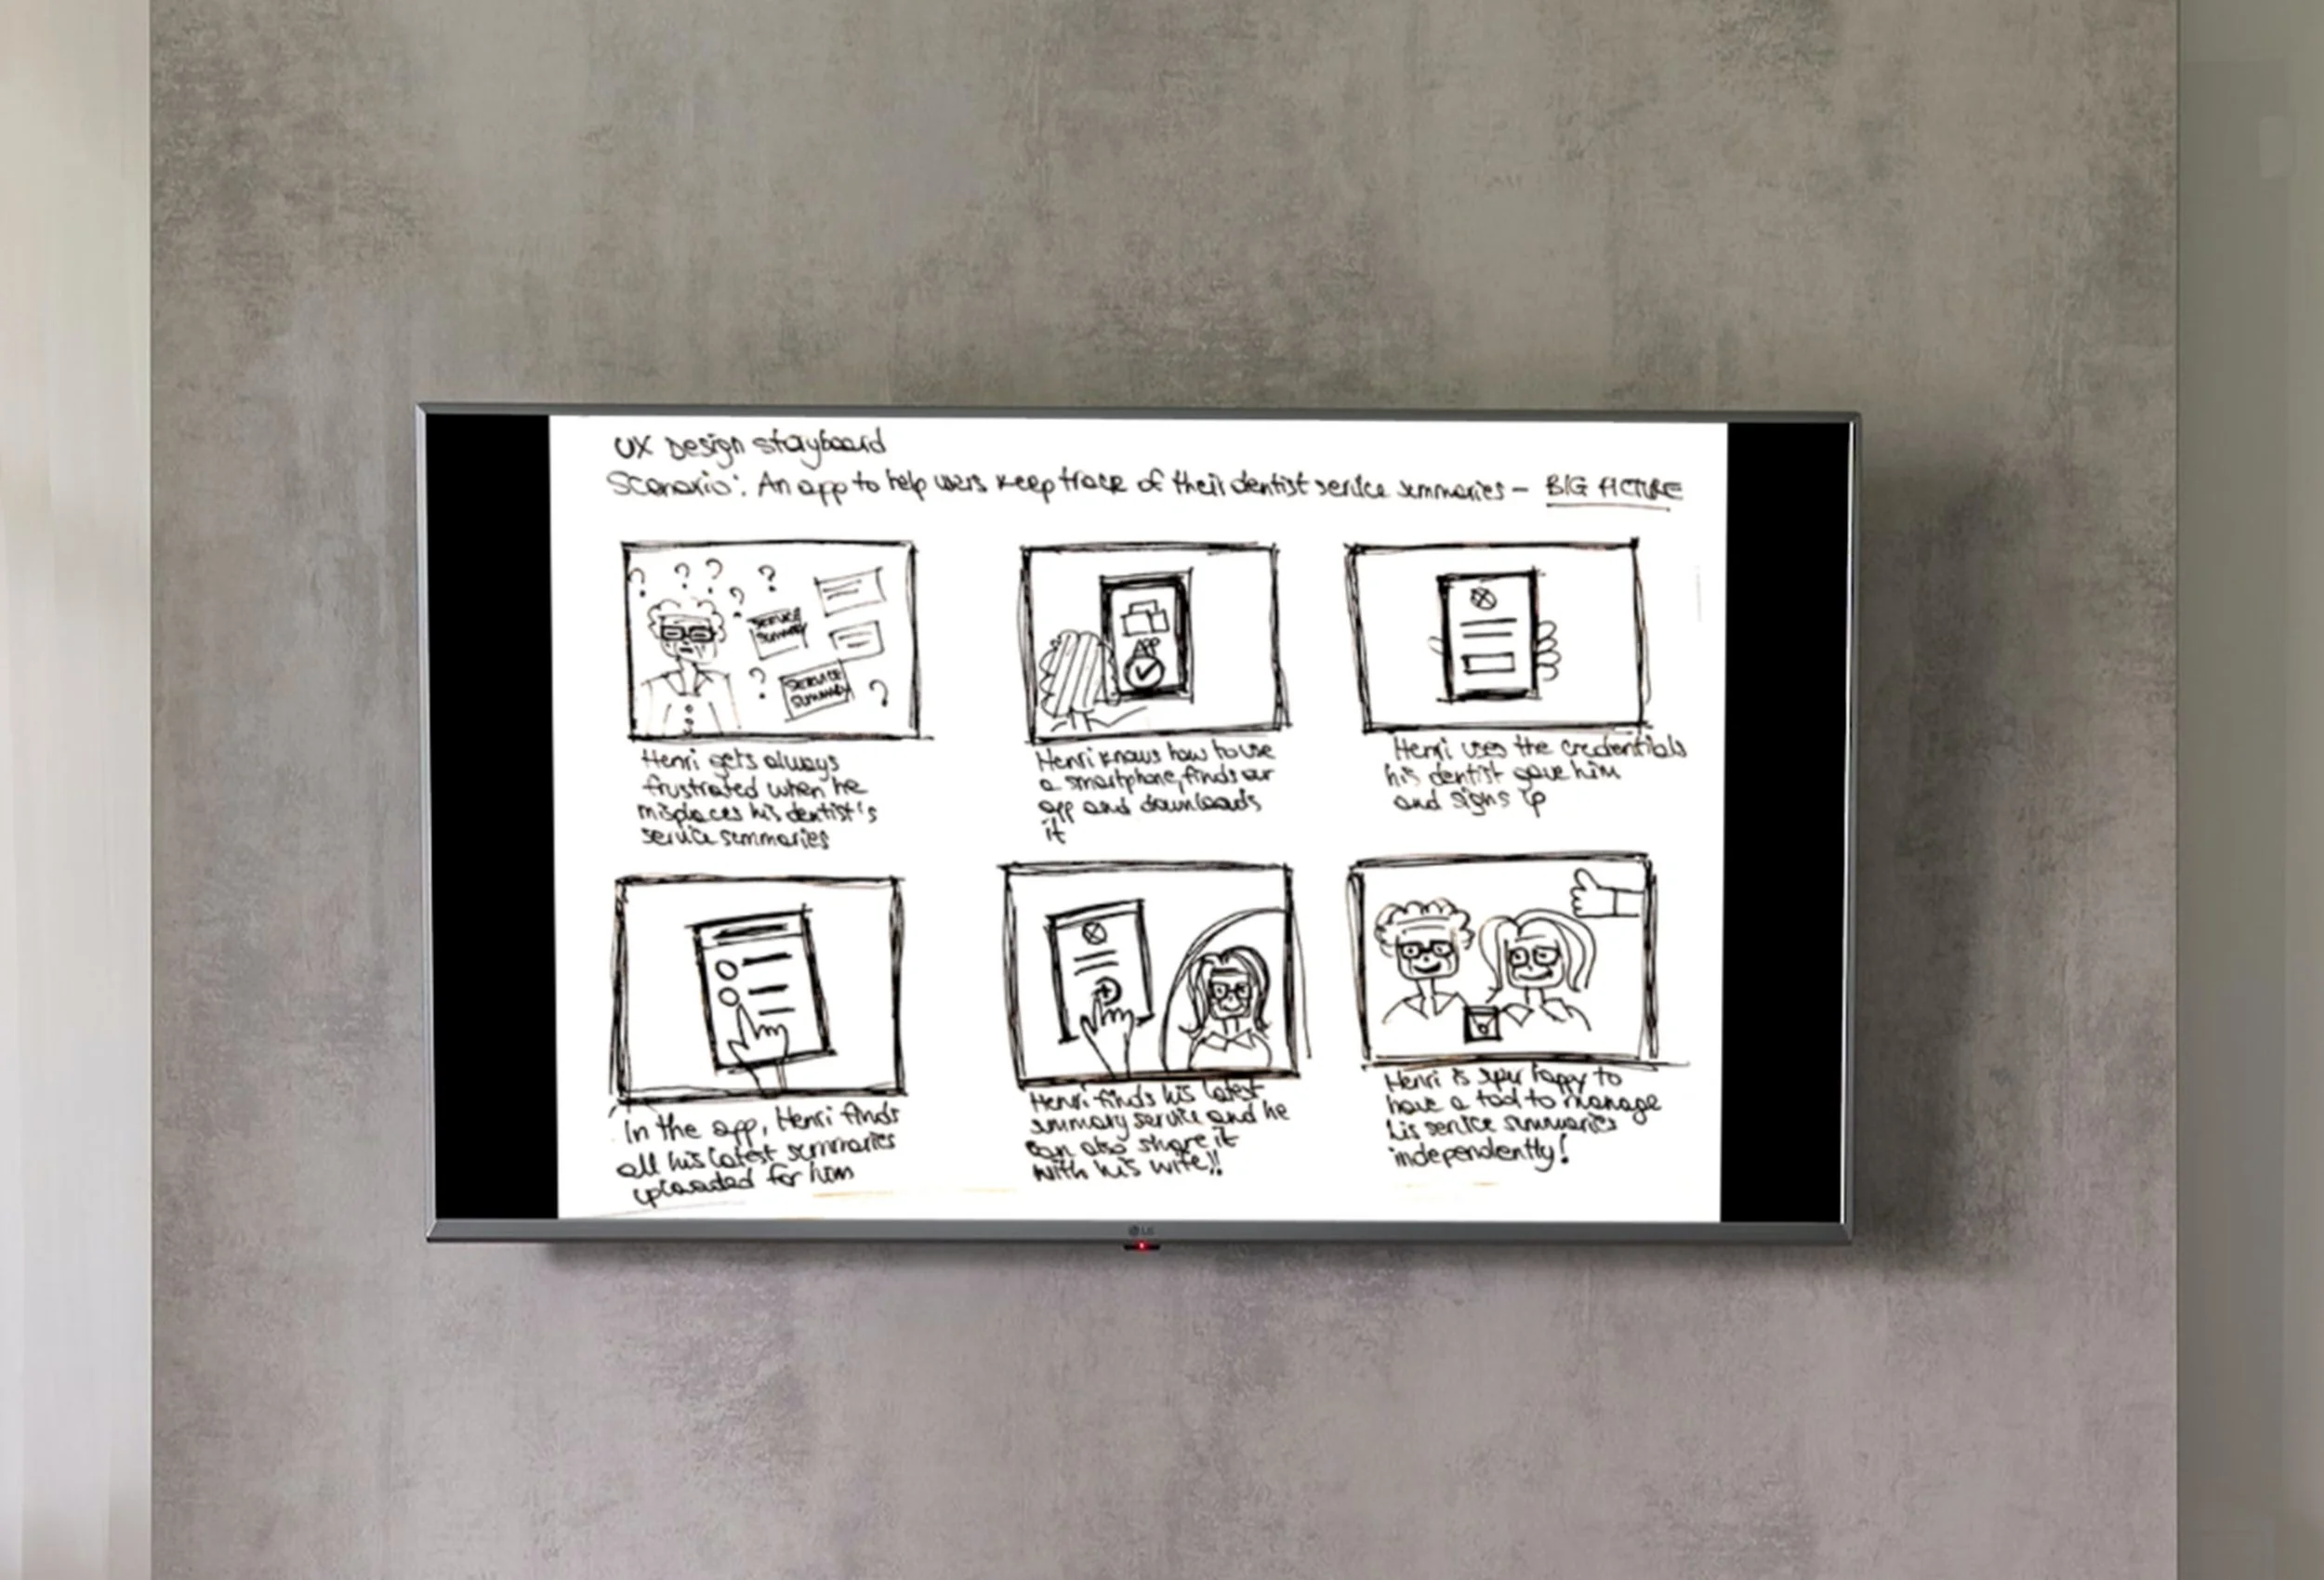 UX Design storyboard
Scenario: An app to help users keep track of their dentist service summaries - BIG PICTURE
SERVICE
SUMMARY
SERVICE
SUMMARY
Henri gets always
frustrated when he
misplaces his dentist's
service summaries
APP
Henri knows how to use
a smartphone, finds our
app and downloads
it
Henri uses the credentials
his dentist gave him
and signs up
In the app, Henri finds
all his latest summaries
uploaded for him
Henri finds his latest
summary service and he
can also share it
with his wife!!
Henri is super happy to
have a tool to manage
his service summaries
independently!
LG